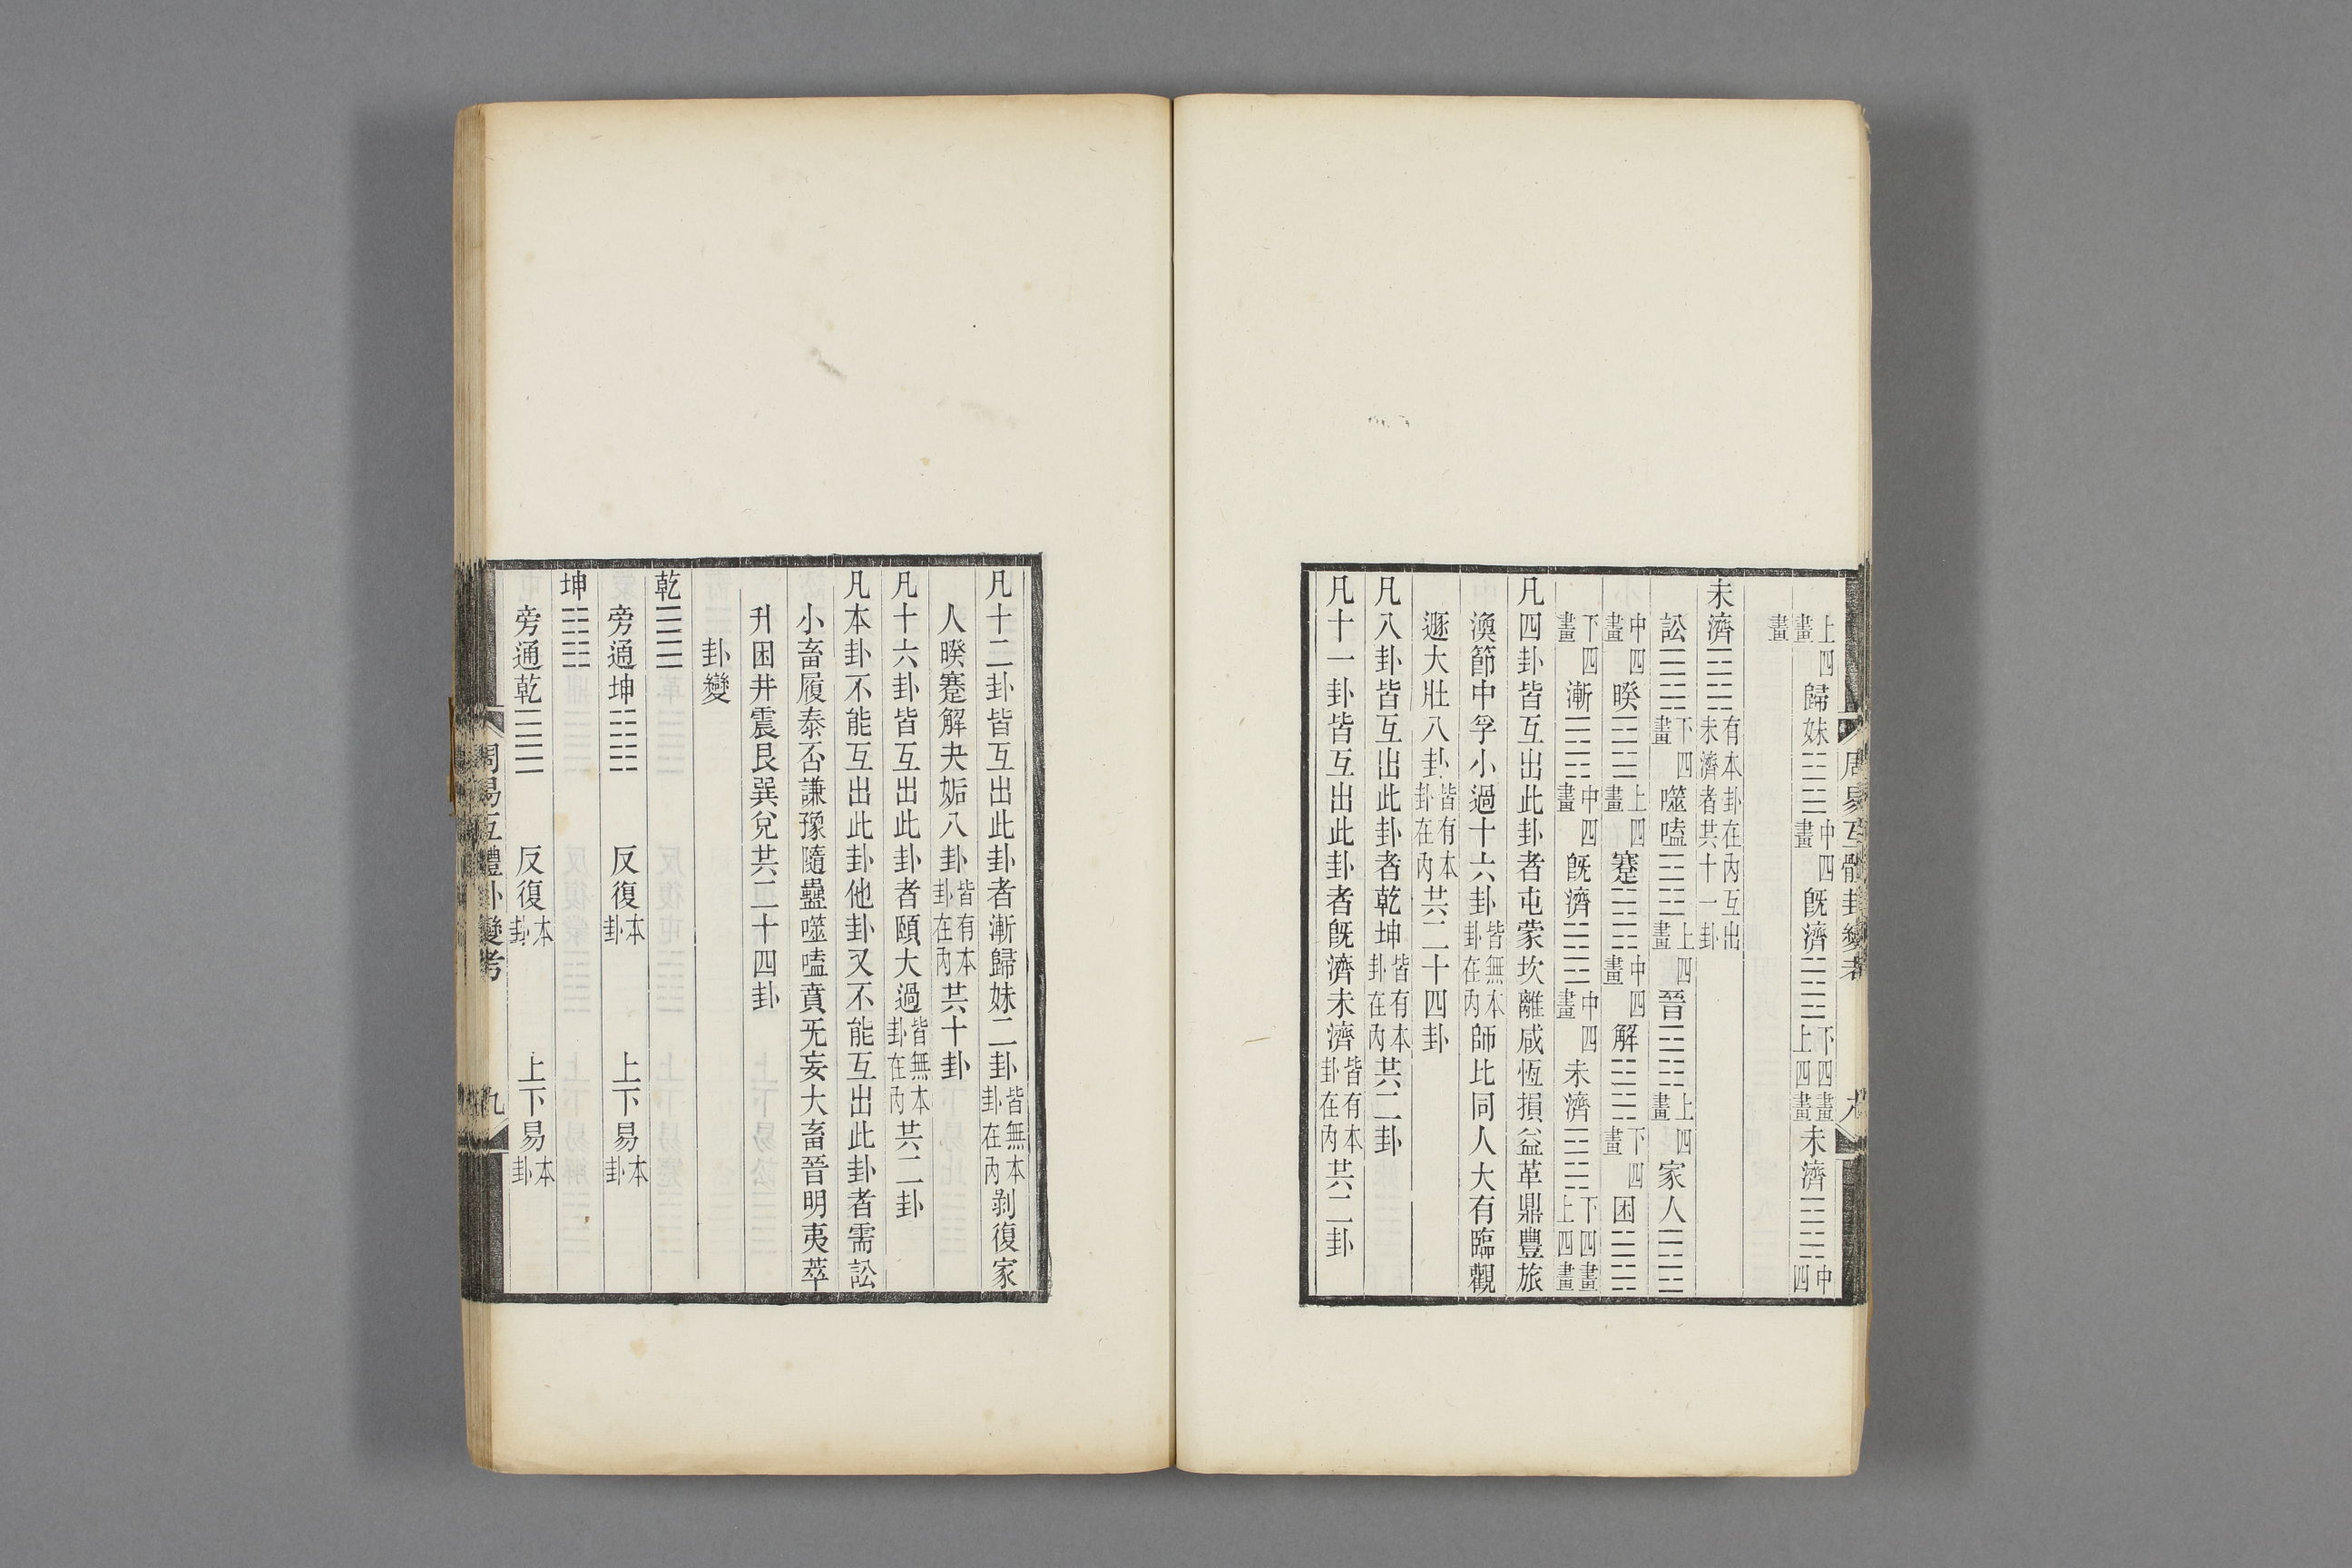 周易互體卦變考
上四畫歸妹䷵中四畫既濟䷾下四畫上四畫未濟䷿中四
畫
未濟䷿有本卦在內互出未濟者共十一卦
訟䷅下四畫噬嗑䷔上四畫晉䷢上四畫家人䷤
中四畫睽䷥上四畫蹇䷦中四畫解䷧下四畫困䷮
下四畫漸䷴中四畫既濟䷾中四畫未濟䷿下四畫上四畫
凡四卦皆互出此卦者屯蒙坎離咸恆損益革鼎豐旅
渙節中孚小過十六卦皆無本卦在內師比同人大有臨觀
遯大壯八卦皆有本卦在內共二十四卦
凡八卦皆互出此卦者乾坤皆有本卦在內共二卦
凡十一卦皆互出此卦者既濟未濟皆有本卦在內共二卦
凡十二卦皆互出此卦者漸歸妹二卦皆無本卦在內剝復家
人睽蹇解夬姤八卦皆有本卦在內共十卦
凡十六卦皆互出此卦者頤大過皆無本卦在內共二卦
凡本卦不能互出此卦他卦又不能互出此卦者需訟
小畜履泰否謙豫隨蠱噬嗑賁无妄大畜晉明夷萃
升困井震艮巽兌共二十四卦
卦變
乾䷀
旁通坤䷁ 反復本卦 上下易本卦
坤䷁
旁通乾䷀ 反復本卦 上下易本卦
周易互體卦變考 九